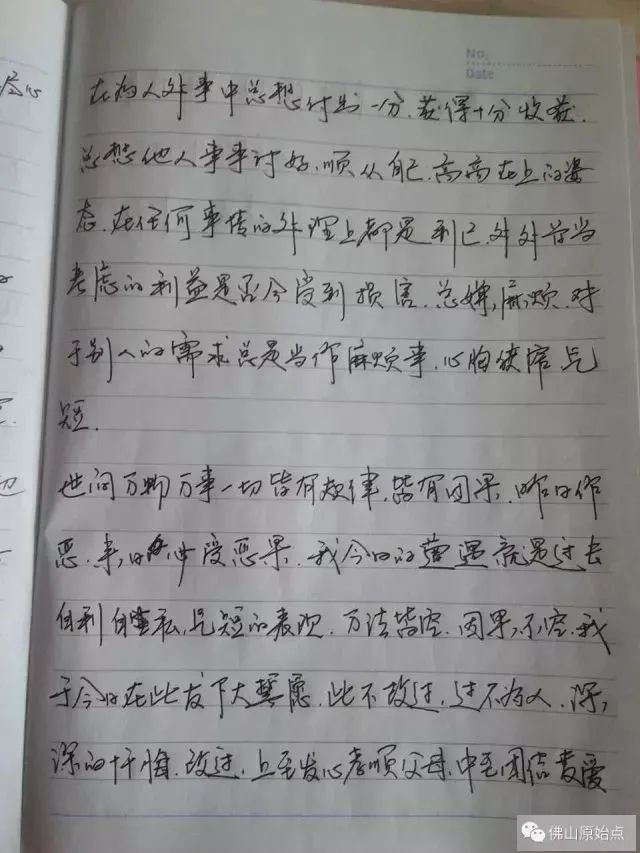 No.
Date
在为人处事中总想付出一分.获得十分收获.
总想他人事事讨好.顺从自己.高高在上的姿
态.在任何事情的处理上都是利己.处处首当
考虑的利益是否会受到损害.总嫌麻烦.对
于别人的需求总是当作麻烦事.心胸狭窄气
短.
世间万物万事一切皆有规律.皆有因果.昨日作
恶.来日必受恶果.我今日的遭遇就是过去
自利自私,气短的表现.万法皆空.因果不空.我
于今日在此发下大誓愿.此不改过.过不为人.深
深的忏悔.改过.上至发心孝顺父母.中至团结友爱
佛山原始点